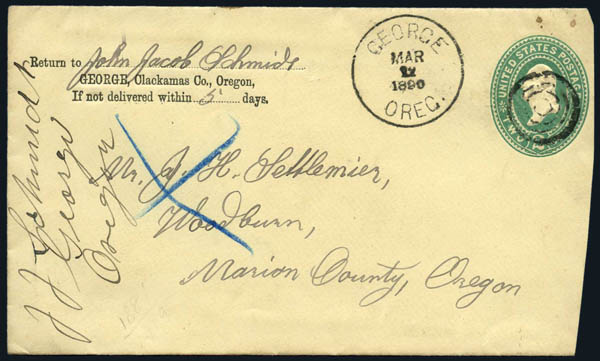 Return to John Jacob Schmidt
GEORGE, Olackamas Co., Oregon,
If not delivered within 5 days.
GEORGE
MAR
1890
OREG.
UNITED STATES POSTAGE
TWO
Mr. J. H. Settlemier,
Woodburn,
Marion County, Oregon
J J Schmidt
George
Oregon